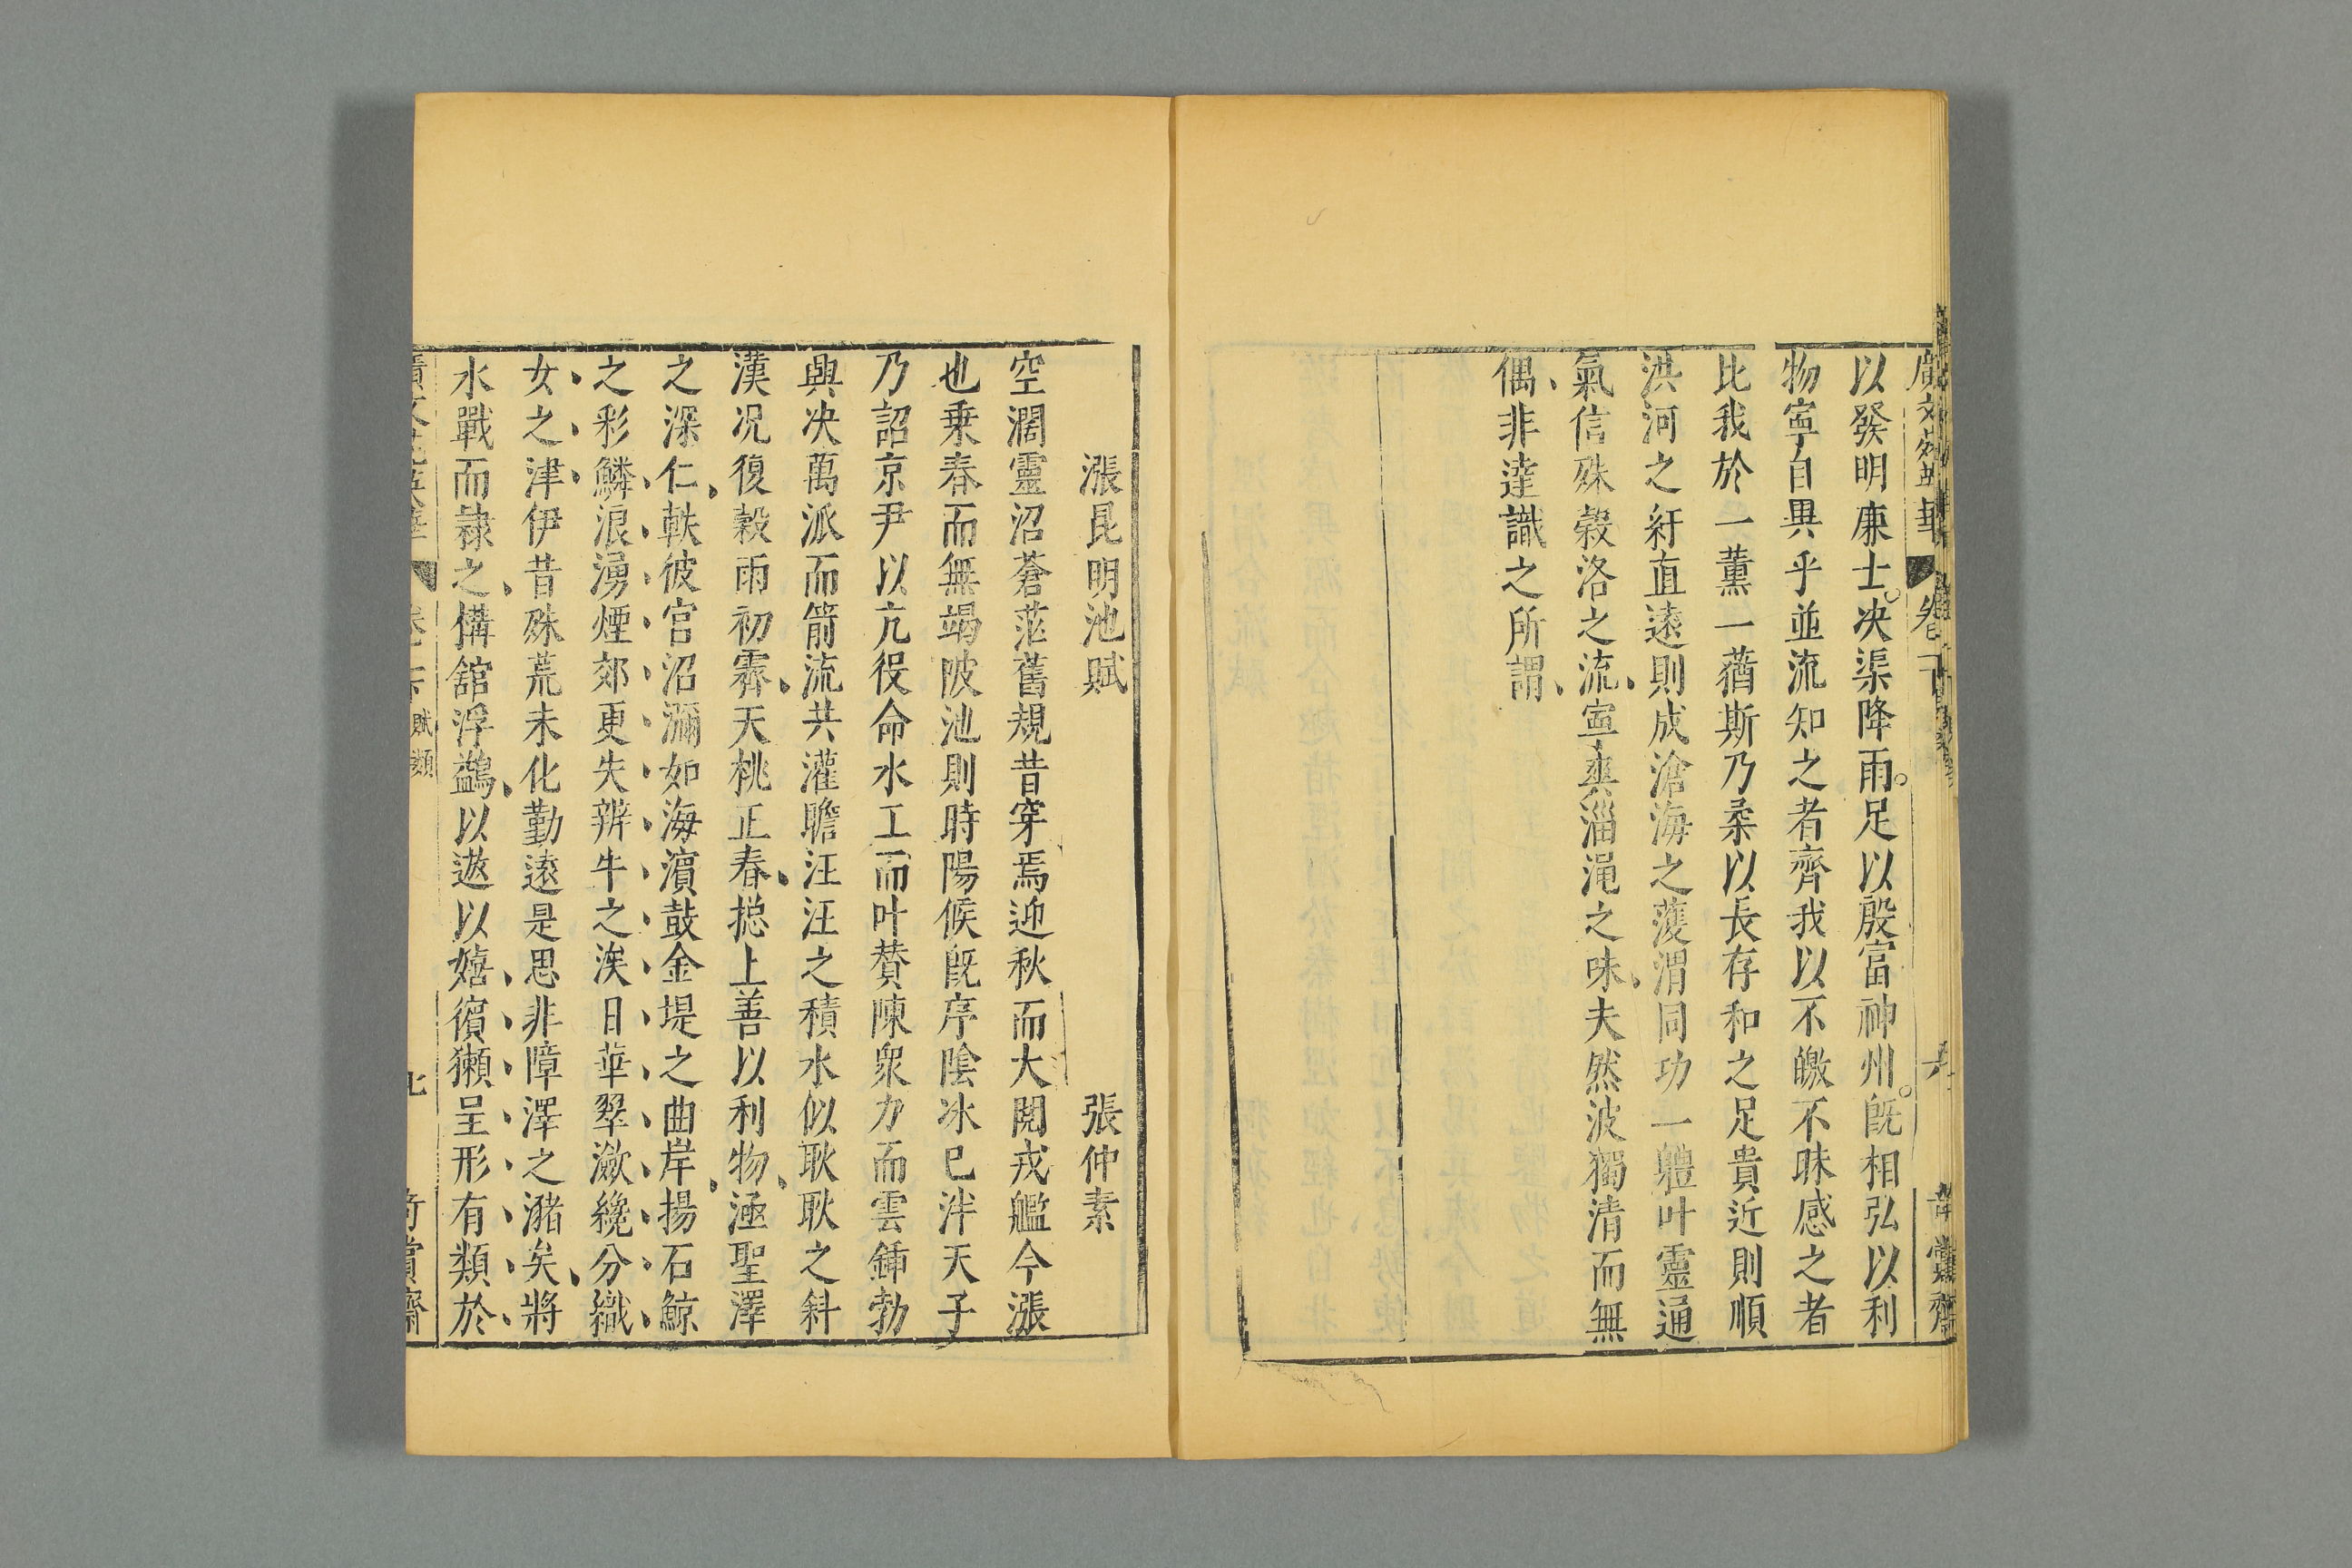 以發明廉士决渠降雨足以殷富神州旣相弘以利
物寜自異乎並流知之者齊我以不皦不昧感之者
比我於一薰一蕕斯乃柔以長存和之足貴近則順
洪河之紆直遠則成滄海之濩渭同功一軆叶靈通
氣信殊榖洛之流寜爽淄澠之味夫然波獨清而無
偶非達識之所謂
漲昆明池賦 張仲素
空濶靈沼蒼茫舊規昔穿焉迎秋而大閱戎艦今漲
也乗春而無竭陂池則時陽候旣序陰冰巳泮天子
乃詔京尹以亢役命水工而叶賛陳衆力而雲鍤勃
興决萬派而箭流共灌瞻汪汪之積水似耿耿之斜
漢况復榖雨初霽天桃正春摠上善以利物涵聖澤
之深仁軼彼宫沼瀰如海濵鼓金堤之曲岸揚石鯨
之彩鱗浪湧煙郊更失辨牛之涘日華翠瀲纔分織
女之津伊昔殊荒未化勤遠是思非障澤之瀦矣將
水戰而隸之構舘浮鷁以遨以嬉獱獺呈形有類於
賦類
七
竒賞齋